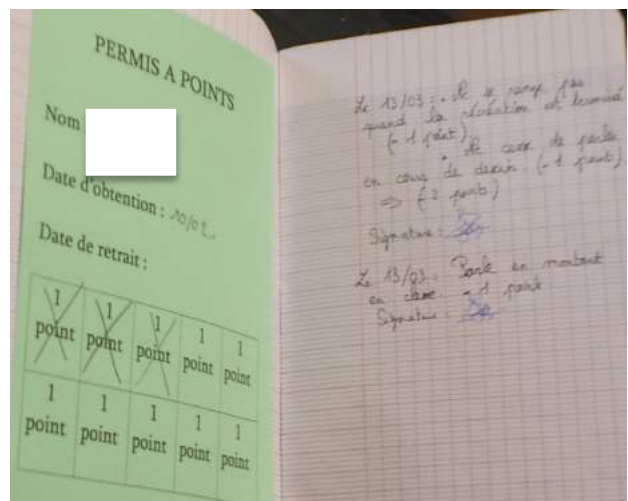 PERMIS A POINTS
Nom
Date d'obtention : 10/02
Date de retrait :
1 point 1 point 1 point 1 point 1 point
1 point 1 point 1 point 1 point 1 point
Le 13/03 : - Ne se range pas
quand la récréation est terminée
(- 1 point)
- Ne cesse de parler
en cours de dessin (- 1 point)
=> (- 2 points)
Signature :
Le 13/03 : Parle en montant
en classe - 1 point
Signature :